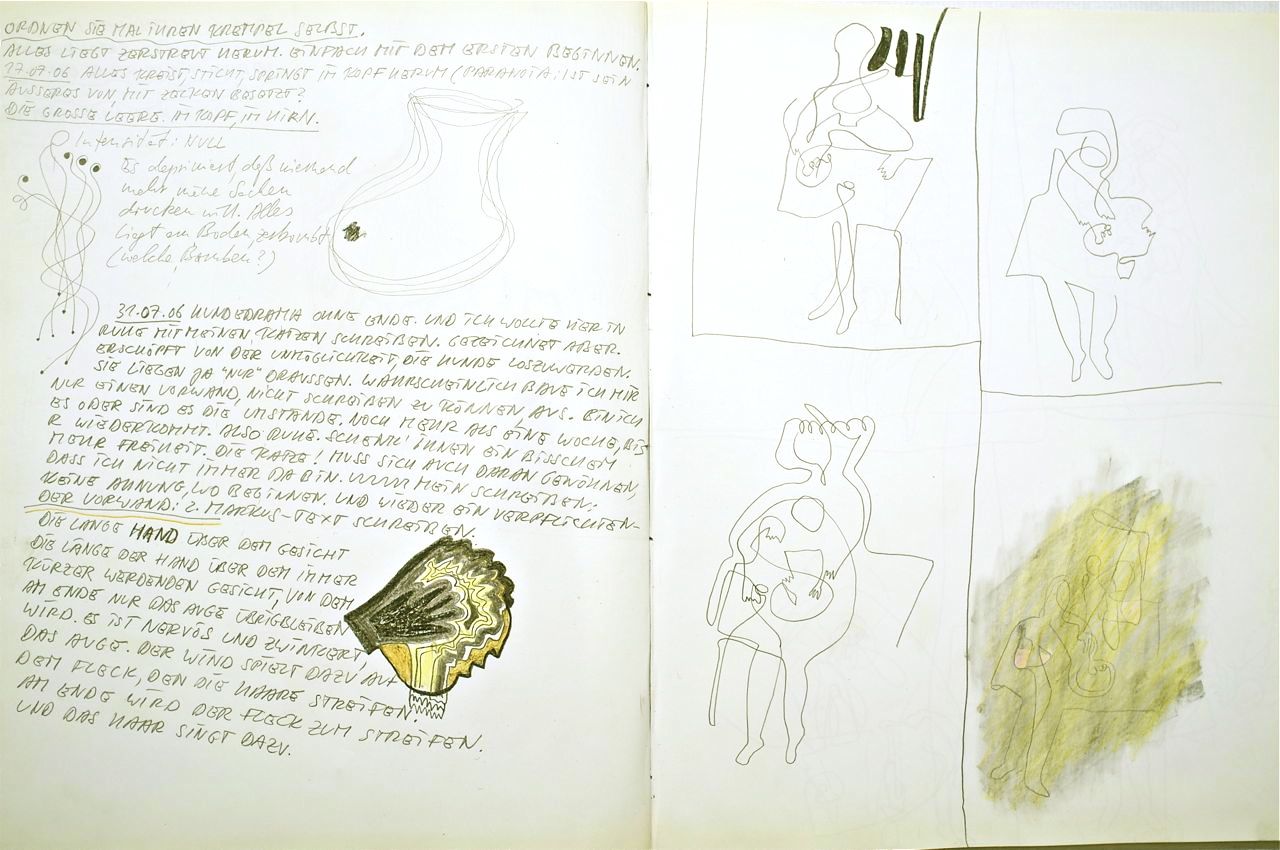 ORDNEN SIE MAL IHREN KREMPEL SELBST.
ALLES LIEGT ZERSTREUT HERUM. EINFACH MIT DEM ERSTEN BEGINNEN.
17.07.06 ALLES KREIST, STICHT, SPRINGT IM KOPF HERUM (PARANOIA: IST SEIN
ÄUSSERES VON, MIT ZECKEN BESETZT?
DIE GROSSE LEERE. IM KOPF, IM HIRN.
Intensität: NULL
Es deprimiert, daß niemand
mehr meine Sachen
drucken will. Alles
liegt am Boden, zerbombt
(welche Bomben?)
31.07.06 HUNDEDRAMA OHNE ENDE. UND ICH WOLLTE HIER IN
RUHE MIT MEINEN KATZEN SCHREIBEN. GEZEICHNET ABER.
ERSCHÖPFT VON DER UNMÖGLICHKEIT, DIE HUNDE LOSZUWERDEN.
SIE LIEGEN JA "NUR" DRAUSSEN. WAHRSCHEINLICH BAUE ICH MIR
NUR EINEN VORWAND, NICHT SCHREIBEN ZU KÖNNEN, AUS. BIN ICH
ES ODER SIND ES DIE UMSTÄNDE. NOCH MEHR ALS EINE WOCHE, BIS
R WIEDERKOMMT. ALSO RUHE. SCHENK' IHNEN EIN BISSCHEN
MEHR FREIHEIT. DIE KATZE! MUSS SICH AUCH DARAN GEWÖHNEN,
DASS ICH NICHT IMMER DA BIN. MEIN SCHREIBEN:
KEINE AHNUNG, WO BEGINNEN. UND WIEDER EIN VERPFLICHTEN-
DER VORWAND: 2. MARKUS-TEXT SCHREIBEN.
DIE LANGE HAND ÜBER DEM GESICHT
DIE LÄNGE DER HAND ÜBER DEM IMMER
KÜRZER WERDENDEN GESICHT, VON DEM
AM ENDE NUR DAS AUGE ÜBRIGBLEIBEN
WIRD. ES IST NERVÖS UND ZWINKERT,
DAS AUGE. DER WIND SPIELT DAZU AUF
DEM FLECK, DEN DIE HAARE STREIFEN.
AM ENDE WIRD DER FLECK ZUM STREIFEN.
UND DAS HAAR SINGT DAZU.